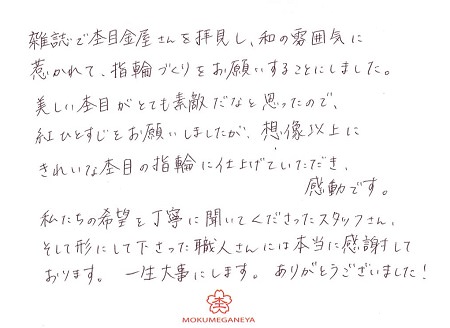 雑誌で杢目金屋さんを拝見し、和の雰囲気に
惹かれて、指輪づくりをお願いすることにしました。
美しい杢目がとても素敵だなと思ったので、
紅ひとすじをお願いしましたが、想像以上に
きれいな杢目の指輪に仕上げていただき、
感動です。
私たちの希望を丁寧に聞いてくださったスタッフさん、
そして形にして下さった職人さんには本当に感謝して
おります。一生大事にします。ありがとうございました！
杢
MOKUMEGANEYA